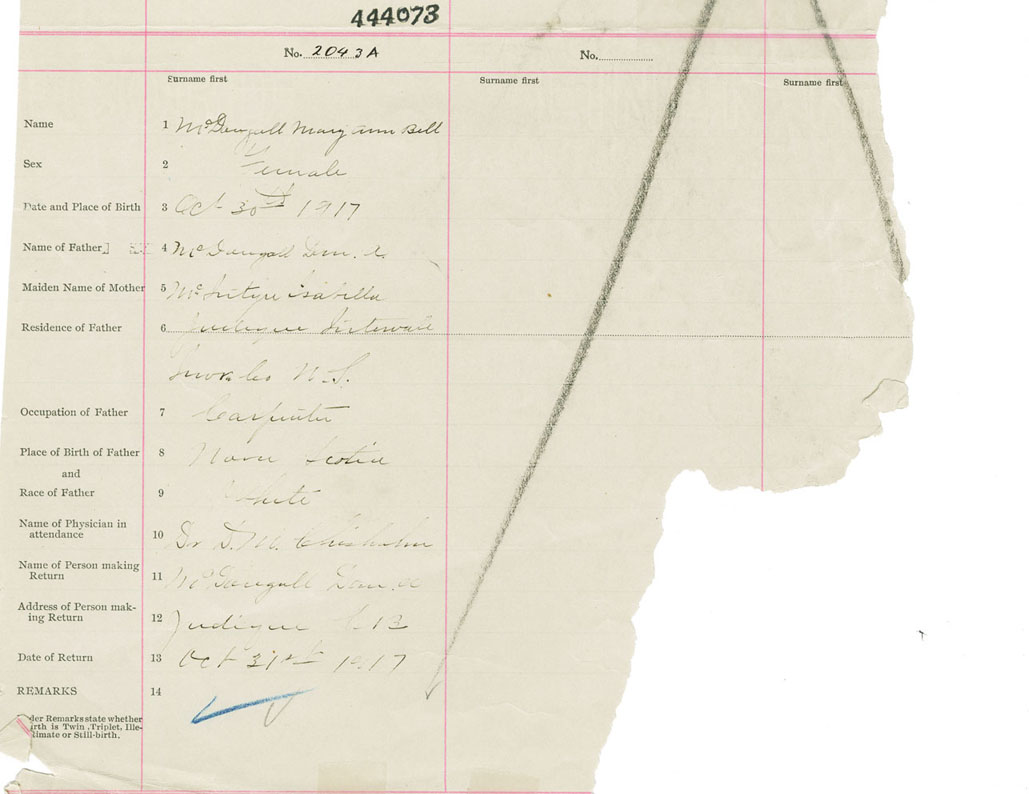 444073
No. 2043A No.
Surname first Surname first Surname first
Name 1 McDougall Mary ann Bell
Sex 2 Female
Date and Place of Birth 3 Oct 30th 1917
Name of Father 4 McDougall Dan. A.
Maiden Name of Mother 5 McIntyre Isabella
Residence of Father 6 Judique Intervale
Inv. Co N.S.
Occupation of Father 7 Carpenter
Place of Birth of Father 8 Nova Scotia
and
Race of Father 9 White
Name of Physician in
attendance 10 Dr D. M. Chisholm
Name of Person making
Return 11 McDougall Dan. A
Address of Person mak-
ing Return 12 Judique C.B
Date of Return 13 Oct 31st 1917
REMARKS 14
der Remarks state whether
irth is Twin, Triplet, Ille-
timate or Still-birth.